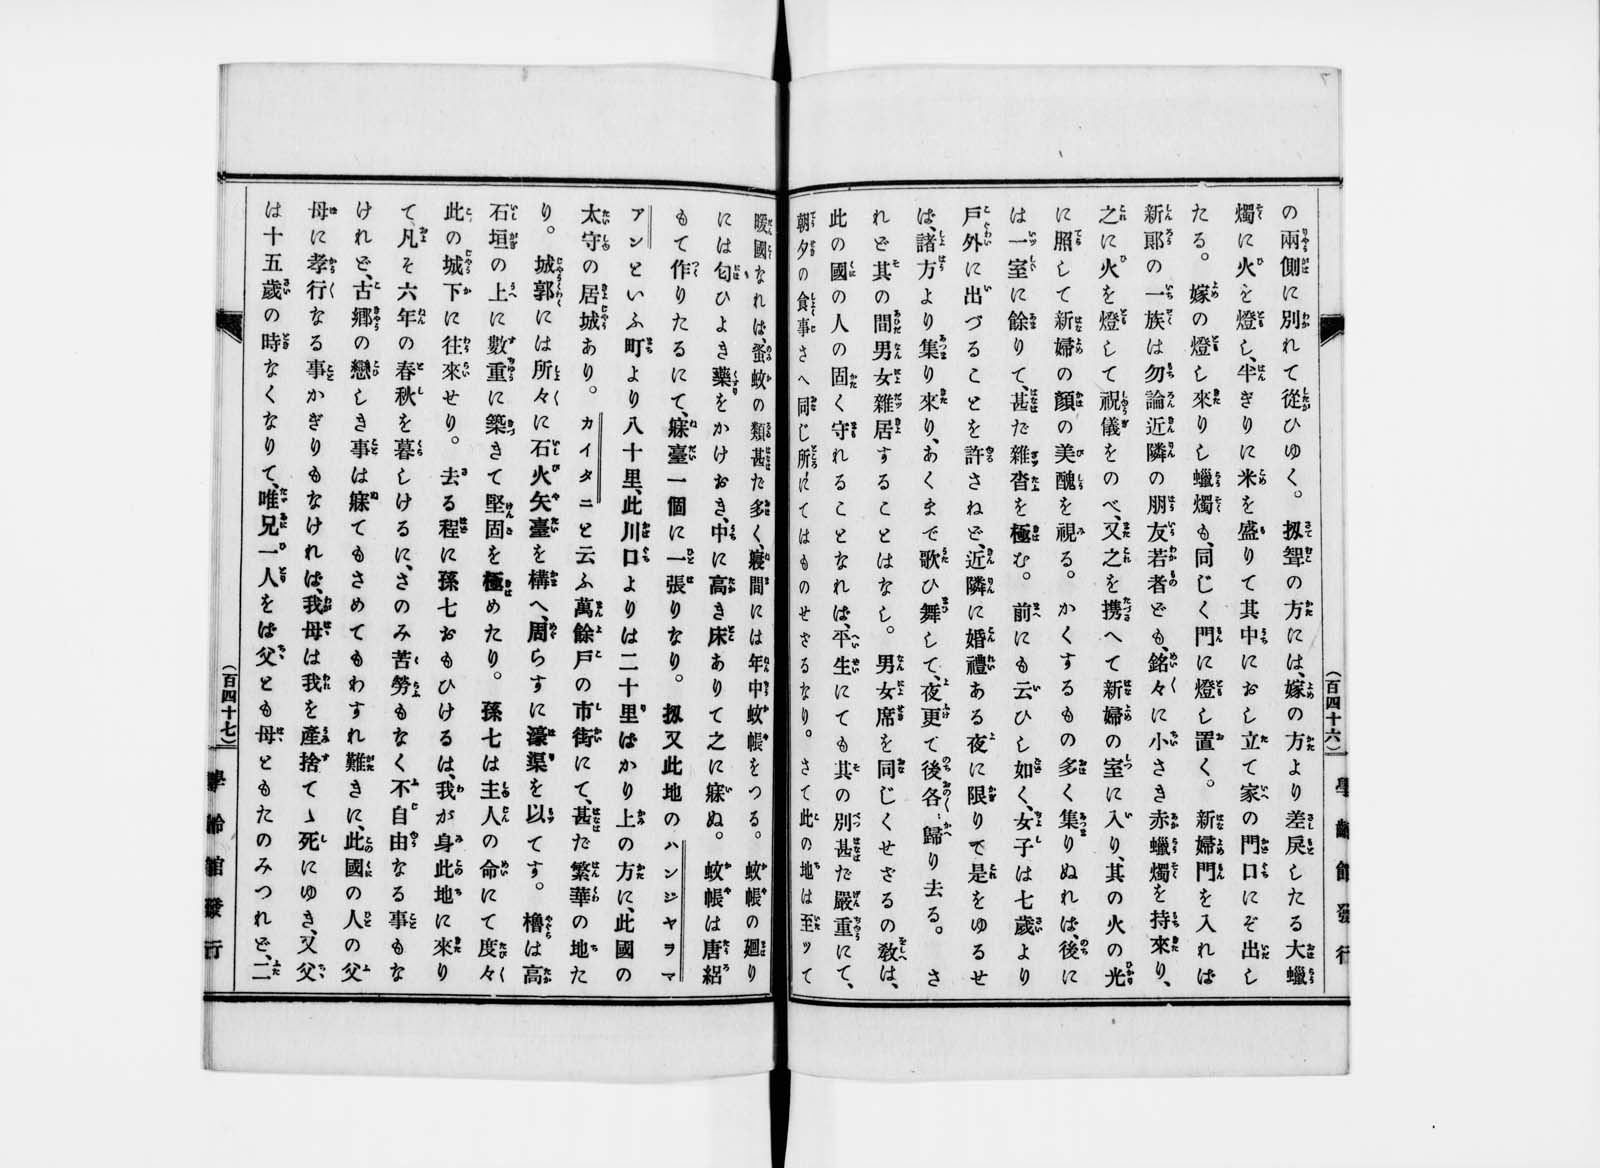 の兩側に別れて從ひゆく。扨聟の方には、嫁の方より差戻したる大蠟
燭に火を燈し、半ぎりに米を盛りて其中におし立て家の門口にぞ出し
たる。嫁の燈し來りし蠟燭も、同じく門に燈し置く。新婦門を入れば
新郎の一族は勿論近隣の朋友若者ども、銘々に小さき赤蠟燭を持來り、
之に火を燈して祝儀をのべ、又之を携へて新婦の室に入り、其の火の光
に照して新婦の顔の美醜を視る。かくするもの多く集りぬれば、後に
は一室に餘りて、甚だ雜沓を極む。前にも云ひし如く、女子は七歲より
戸外に出づることを許さねど、近隣に婚禮ある夜に限りて是をゆるせ
ば、諸方より集り來り、あくまで歌ひ舞して、夜更て後各〻歸り去る。さ
れど其の間男女雜居することはなし。男女席を同じくせざるの敎は、
此の國の人の固く守れることなれば、平生にても其の別甚だ嚴重にて、
朝夕の食事さへ同じ所にてはものせさるなり。さて此の地は至ッて
(百四十六)
學齡館發行
暖國なれは、蚤蚊の類甚だ多く、寢間には年中蚊帳をつる。蚊帳の廻り
には匂ひよき藥をかけおき、中に高き床ありて之に寐ぬ。蚊帳は唐絽
もて作りたるにて、寐臺一個に一張りなり。扨又此地のハンジヤヲマ
アンといふ町より八十里、此川口よりは二十里ばかり上の方に、此國の
太守の居城あり。カイタニと云ふ萬餘戸の市街にて、甚だ繁華の地た
り。城郭には所々に石火矢臺を構へ、周らすに濠渠を以てす。櫓は高
石垣の上に數重に築きて堅固を極めたり。孫七は主人の命にて度々
此の城下に往來せり。去る程に孫七おもひけるは、我が身此地に來り
て、凡そ六年の春秋を暮しけるに、さのみ苦勞もなく不自由なる事もな
けれど、古鄕の戀しき事は寐てもさめてもわすれ難きに、此國の人の父
母に孝行なる事かぎりもなければ、我母は我を產捨てゝ死にゆき、又父
は十五歲の時なくなりて、唯兄一人をば父とも母ともたのみつれど、二
(百四十七)
學齡館發行